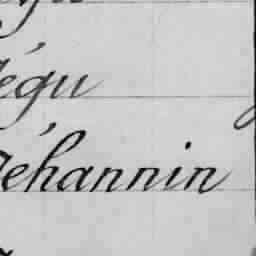 égu
éhannin